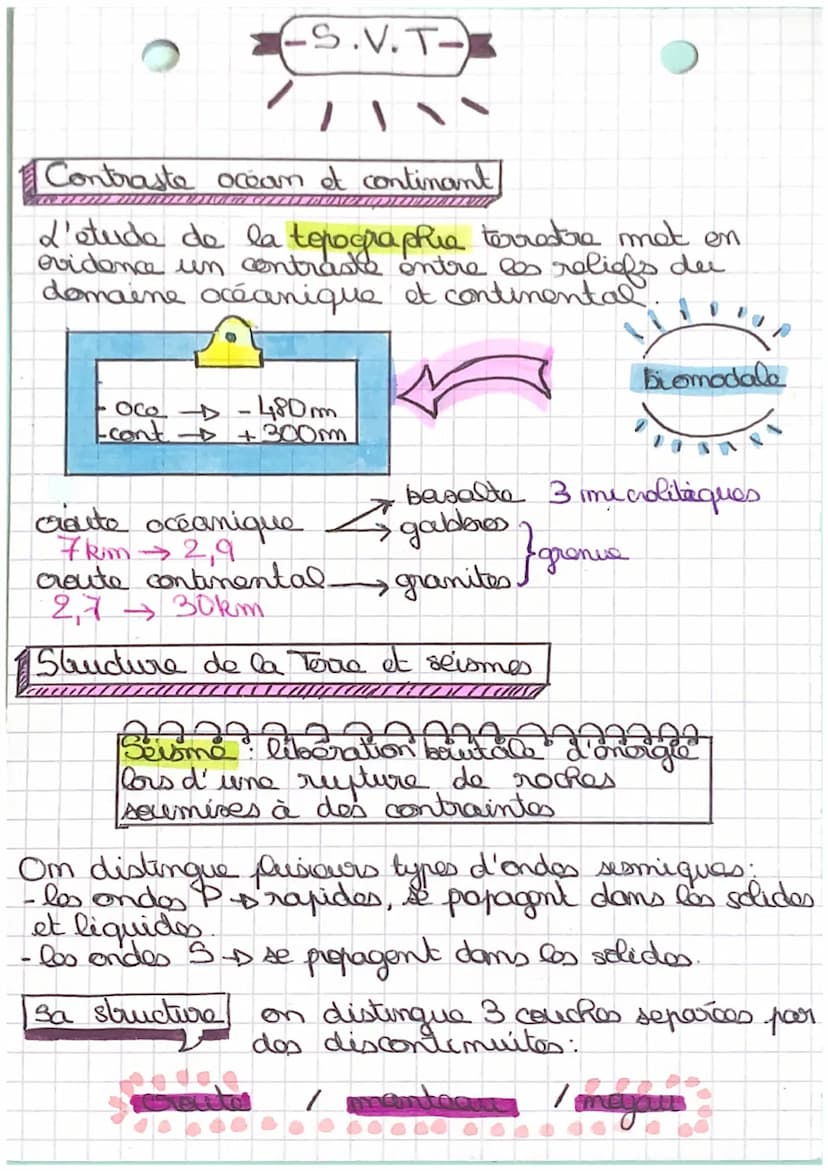 -S.V.T-
Contraste océan et continant
L'etude de la topographie terrestre met en
evidence un contraste entre les reliefs du
domaine océanique et continental.
bimodale
- oce → - 480m
- cont → + 300m
croute océanique → basalte 3 microlitiques
→ gabbros
7km → 2,9
} grenue
croute continental → granites
2,7 → 30km
Structure de la Terre et séismes
Séisme : libération brutale d'énergie
lors d'une rupture de roches
soumises à des contraintes
On distingue plusieurs types d'ondes sismiques:
- les ondes P → rapides, se popagent dans les solides
et liquides.
- les ondes S → se propagent dans les solides.
Sa structure on distingue 3 couches separées par
des discontinuites:
croute / manteau / noyau